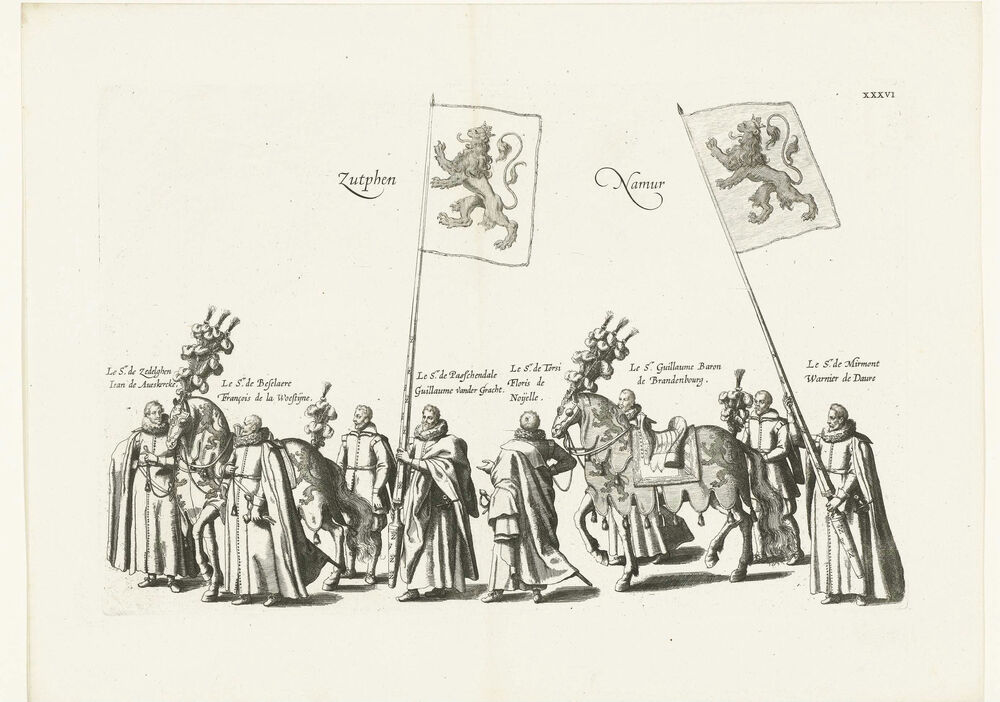 XXXVI
Zutphen
Namur
Le Sr. de Zedelghen
Iean de Aueskercke.
Le Sr. de Beselaere
François de la Woestyne.
Le Sr. de Passchendale
Guillaume vander Gracht.
Le Sr. de Torsi
Floris de
Noyelle.
Le Sr. Guillaume Baron
de Brandenbourg.
Le Sr. de Mirmont
Warnier de Daure